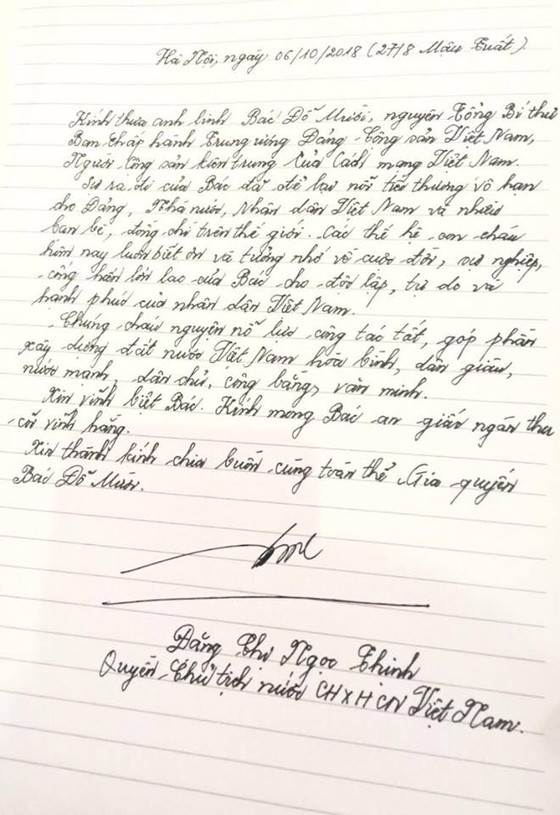 Hà Nội, ngày 06/10/2018 (27/8 Mậu Tuất).
Kính thưa anh linh Bác Đỗ Mười, nguyên Tổng Bí thư
Ban Chấp hành Trung ương Đảng Cộng sản Việt Nam,
Người cộng sản kiên trung của Cách mạng Việt Nam.
Sự ra đi của Bác đã để lại nỗi tiếc thương vô hạn
cho Đảng, Nhà nước, Nhân dân Việt Nam và nhiều
bạn bè, đồng chí trên thế giới. Các thế hệ con cháu
hôm nay luôn biết ơn và tưởng nhớ về cuộc đời, sự nghiệp,
công hiến lớn lao của Bác cho độc lập, tự do và
hạnh phúc của nhân dân Việt Nam.
Chúng cháu nguyện nỗ lực công tác tốt, góp phần
xây dựng đất nước Việt Nam hòa bình, dân giàu,
nước mạnh, dân chủ, công bằng, văn minh.
Xin vĩnh biệt Bác. Kính mong Bác an giấc ngàn thu
cõi vĩnh hằng.
Xin thành kính chia buồn cùng toàn thể Gia quyến
Bác Đỗ Mười.
Đặng Thị Ngọc Thịnh
Quyền Chủ tịch nước CHXHCN Việt Nam.